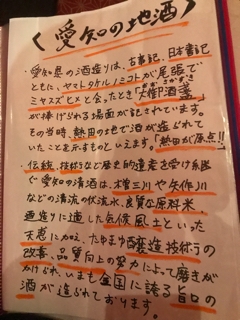 〈愛知の地酒〉
・愛知県の酒造りは、古事記、日本書記
ともに、ヤマトタケルノミコトが尾張で
ミヤズヒメと会ったとき「大御酒盞」
が捧げられる場面が記されています。
その当時、熱田の地で酒が造られて
いたことを示すものといえます。「熱田が原点!!」
・伝統、技術など歴史的遺産を受け継
ぐ愛知の清酒は、木曽三川や矢作川
などの清流の伏流水、良質な原料米、
酒造りに適した気候風土といった
天恵に加え、たゆまぬ醸造技術の
改善、品質向上の努力によって磨きが
かけられ、いまも全国に誇る旨口の
酒が造られております。